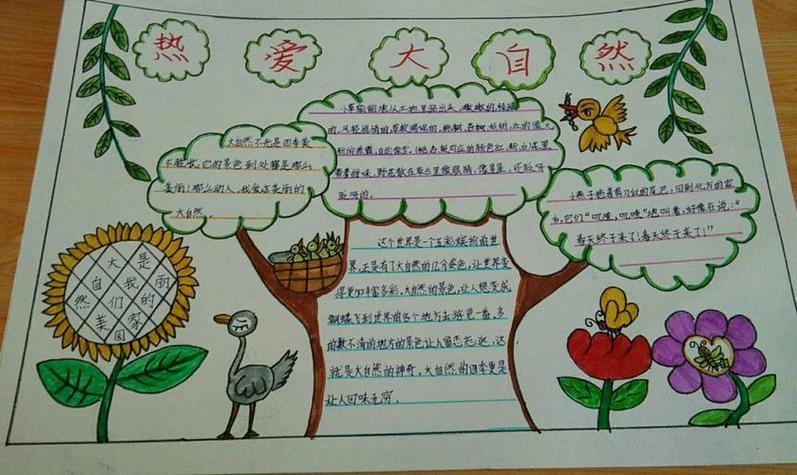 热 爱 大 自 然
大自然不光是四季美
不胜收,它的景色到处都是那么
美丽!那么动人,我爱这美丽的
大自然。
小草偷偷地从土地里钻出来,嫩嫩的,绿绿
的,风轻悄悄的,草软绵绵的,桃树,杏树,
花里
带着甜味,野花散在草丛里像眼睛,像星星,还眨呀
眨呀的。
小燕子拖着剪刀似的尾巴,回到北方的家
乡,它们“叽喳,叽喳”地叫着,好像在说:“
春天终于来了!春天终于来了!”
这个世界是一个五彩缤纷的世
界,正是有了大自然的几分姿色,让世界变
得更加丰富多彩,大自然的景色,让人想变成
蝴蝶飞到世界的各个地方去游览一番,多
的数不清的地方的景色让人留恋忘返,这
就是大自然的神奇,大自然的四季更是
让人回味无穷。
大 是
自 我 丽
然 们 的
美 家
园